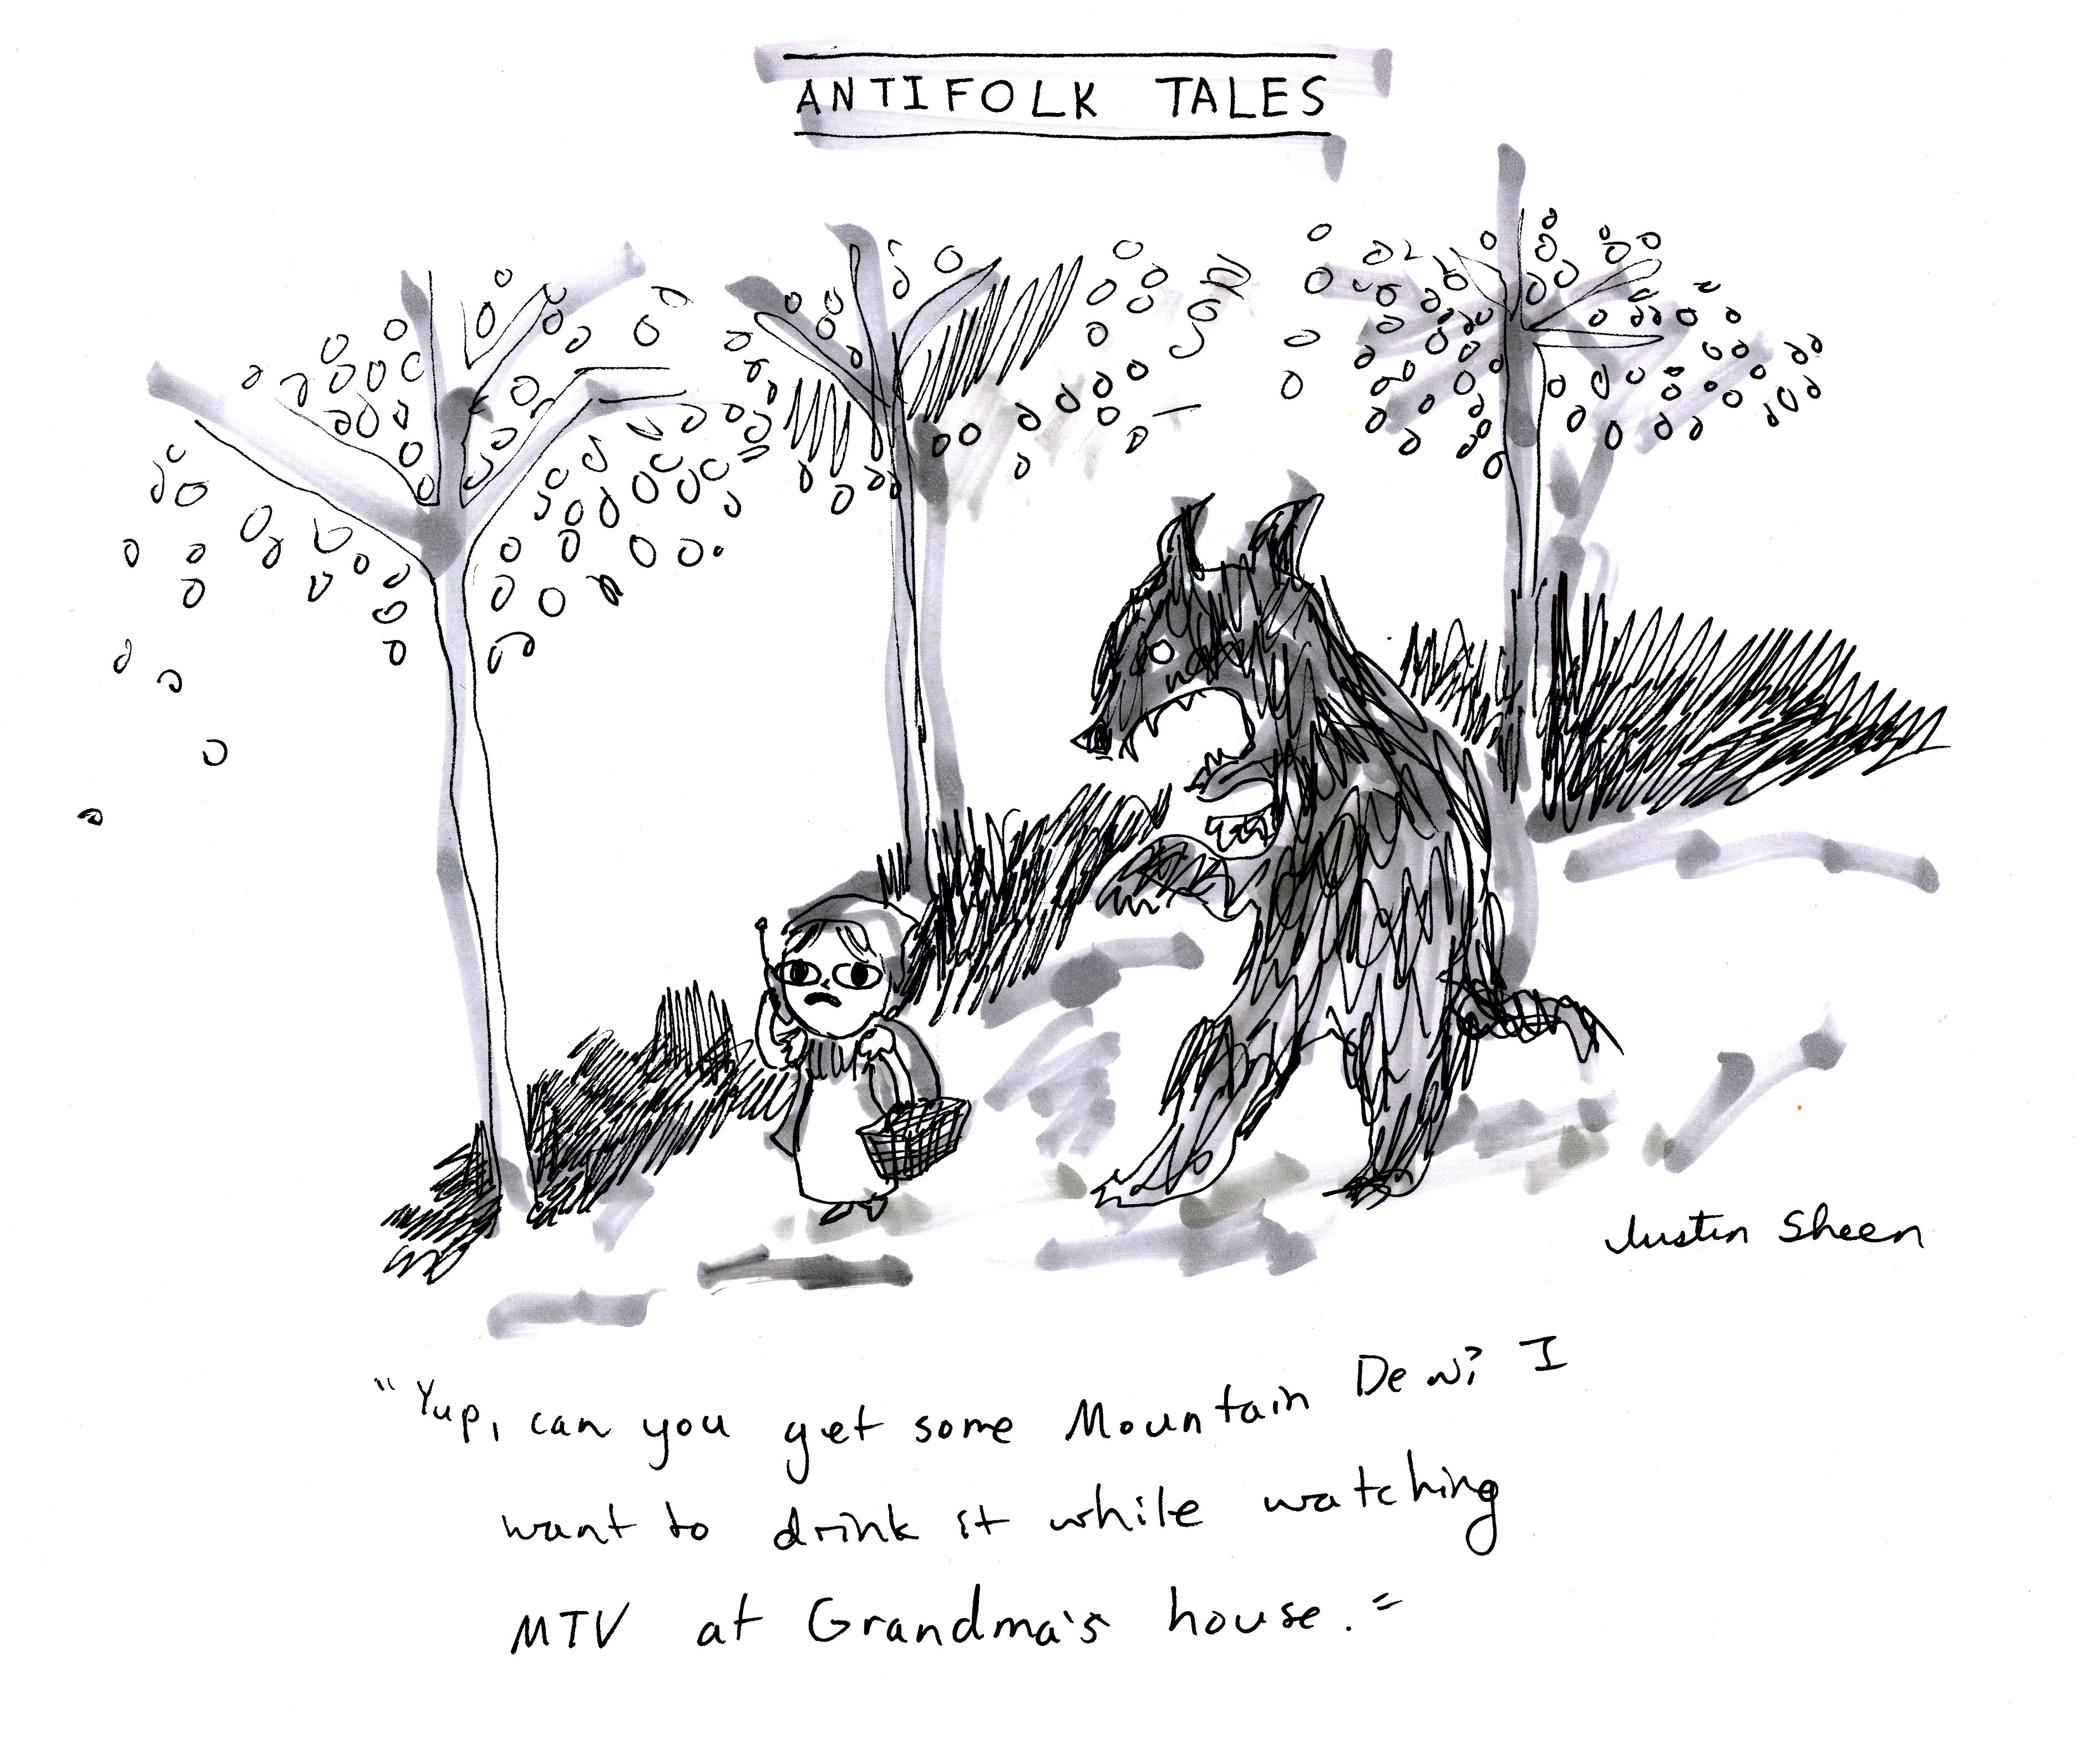 ANTIFOLK TALES
Justin Sheen
"Yup, can you get some Mountain Dew? I
want to drink it while watching
MTV at Grandma's house."